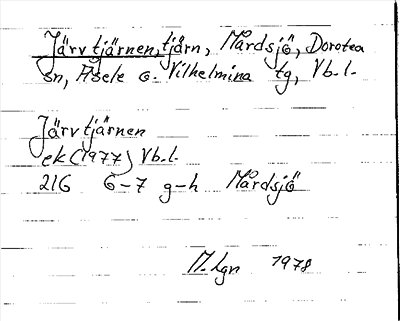 Järvtjärnen, tjärn, Mårdsjö, Dorotea
sn, Åsele o. Vilhelmina tg, Vb.l.
Järvtjärnen
ek (1977) Vb.l.
21G 6-7 g-h Mårdsjö
M.Lgn 1978